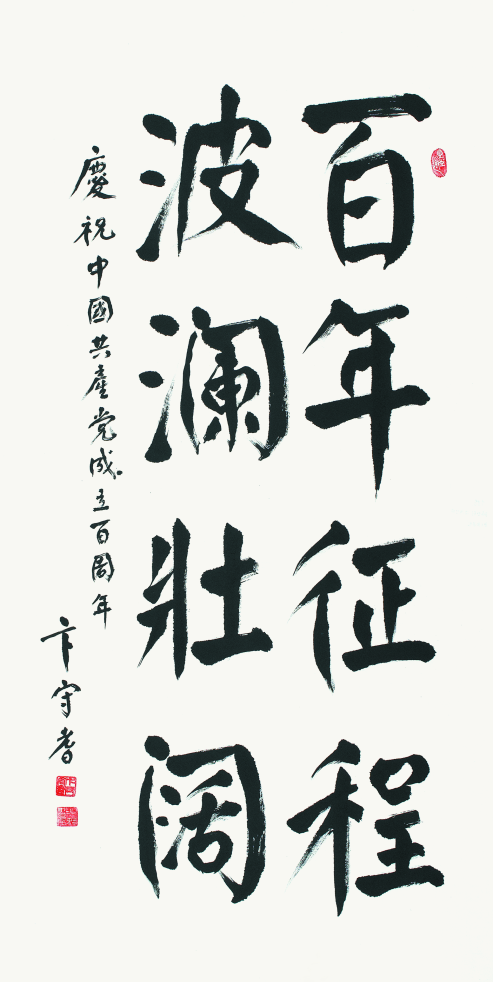 百年征程
波澜壮阔
慶祝中國共產党成立百周年
卞守耆